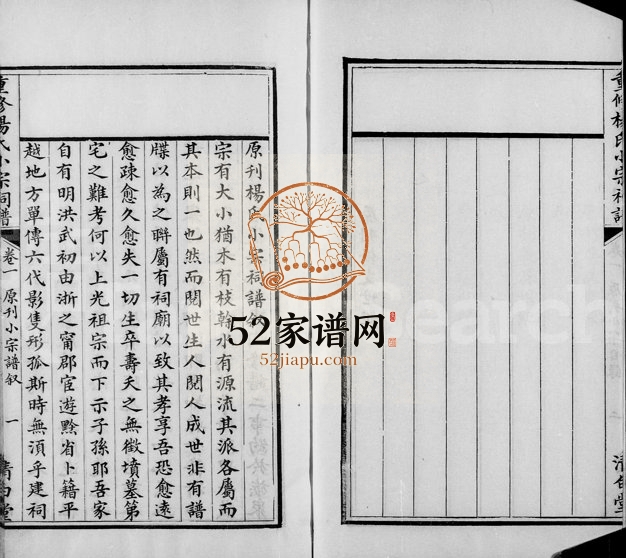 重修楊氏小宗祠譜
清白堂
原刊楊氏小宗祠譜叙
宗有大小猶木有枝榦水有源流其派各屬而
其本則一也然而閱世生人閱人成世非有譜
牒以為之聯屬有祠廟以致其孝享吾恐愈遠
愈疎愈久愈失一切生卒壽夭之無徵墳墓第
宅之難考何以上光祖宗而下示子孫耶吾家
自有明洪武初由浙之甯郡宦遊黔省卜籍平
越地方單傳六代影隻形孤斯時無須乎建祠
重修楊氏小宗祠譜
卷一
原刊小宗譜叙
一
清白堂
52家谱网
52jiapu.com